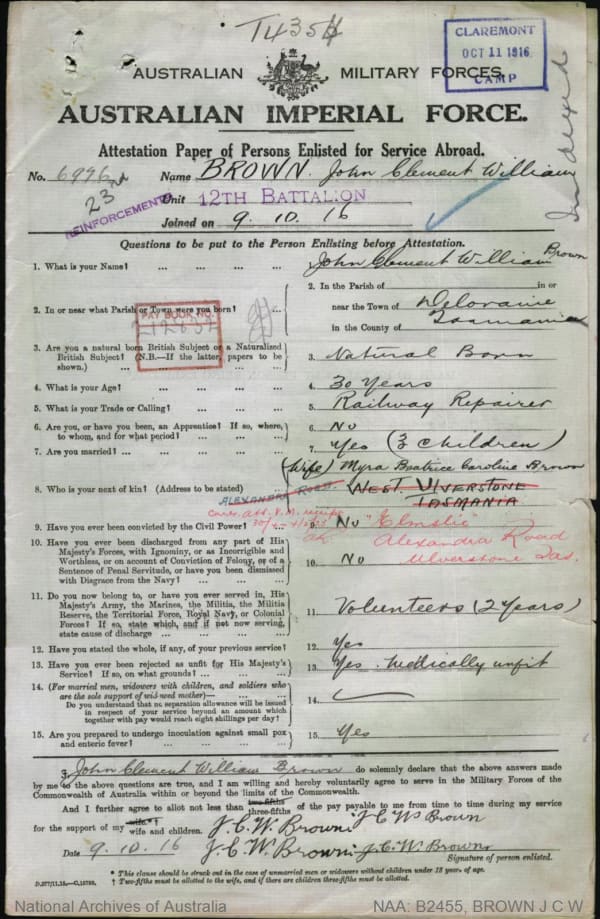 T4354
CLAREMONT
OCT 11 1916
CAMP
AUSTRALIAN MILITARY FORCES.
AUSTRALIAN IMPERIAL FORCE.
Indexed
Attestation Paper of Persons Enlisted for Service Abroad.
No. 6996 Name BROWN. John Clement William
23rd
REINFORCEMENTS
Unit 12TH BATTALION
Joined on 9. 10. 16
Questions to be put to the Person Enlisting before Attestation.
1. What is your Name? ... ... ... ... John Clement William Brown
2. In or near what Parish or Town were you born? ...
2. In the Parish of in or
near the Town of Deloraine
in the County of Tasmania
PAY BOOK NO.
3. Are you a natural born British Subject or a Naturalized
British Subject? (N.B.—If the latter, papers to be
shown.) ... 3. Natural Born
4. What is your Age? ... ... ... ... 4. 30 Years
5. What is your Trade or Calling? ... ... ... 5. Railway Repairer
6. Are you, or have you been, an Apprentice? If so, where,
to whom, and for what period? ... ... ... 6. No
7. Are you married? ... ... ... ... ... 7. Yes (3 children)
(Wife) Myra Beatrice Caroline Brown
8. Who is your next of kin? (Address to be stated) ... 8. WEST ULVERSTONE
TASMANIA
ALEXANDRA ROAD.
"Elmslie"
Alexandra Road
Ulverstone Tas.
9. Have you ever been convicted by the Civil Power? 9. No
10. Have you ever been discharged from any part of His
Majesty's Forces, with Ignominy, or as Incorrigible and
Worthless, or on account of Conviction of Felony, or of a
Sentence of Penal Servitude, or have you been dismissed
with Disgrace from the Navy? ... ... ... 10. No
11. Do you now belong to, or have you ever served in, His
Majesty's Army, the Marines, the Militia, the Militia
Reserve, the Territorial Force, Royal Navy, or Colonial
Forces? If so, state which, and if not now serving,
state cause of discharge ... ... ... 11. Volunteers (2 Years)
12. Have you stated the whole, if any, of your previous service? 12. Yes
13. Have you ever been rejected as unfit for His Majesty's
Service? If so, on what grounds? ... ... ... 13. Yes. Medically unfit
14. (For married men, widowers with children, and soldiers who
are the sole support of widowed mother)—
Do you understand that no separation allowance will be issued
in respect of your service beyond an amount which
together with pay would reach eight shillings per day? 14.
15. Are you prepared to undergo inoculation against small pox
and enteric fever? ... ... ... ... 15. Yes
I, John Clement William Brown do solemnly declare that the above answers made
by me to the above questions are true, and I am willing and hereby voluntarily agree to serve in the Military Forces of the
Commonwealth of Australia within or beyond the limits of the Commonwealth.
And I further agree to allot not less than two-fifths three-fifths of the pay payable to me from time to time during my service
for the support of my wife*† wife and children. J.C.W. Brown. J C W Brown
Date 9. 10. 16 J.C.W. Brown. J.C.W. Brown.
Signature of person enlisted.
* This clause should be struck out in the case of unmarried men or widowers without children under 18 years of age.
† Two-fifths must be allotted to the wife, and if there are children three-fifths must be allotted.
National Archives of Australia NAA: B2455, BROWN J C W